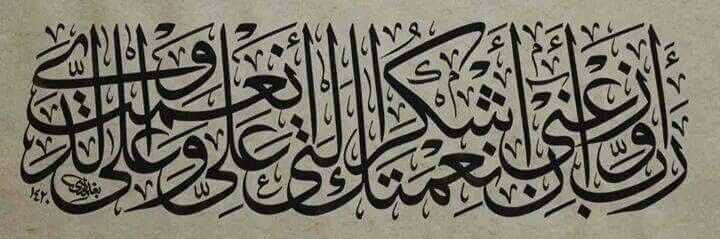 رَبِّ أَوْزِعْنِي أَنْ أَشْكُرَ نِعْمَتَكَ الَّتِي أَنْعَمْتَ عَلَيَّ وَعَلَى وَالِدَيَّ
١٤٢٠